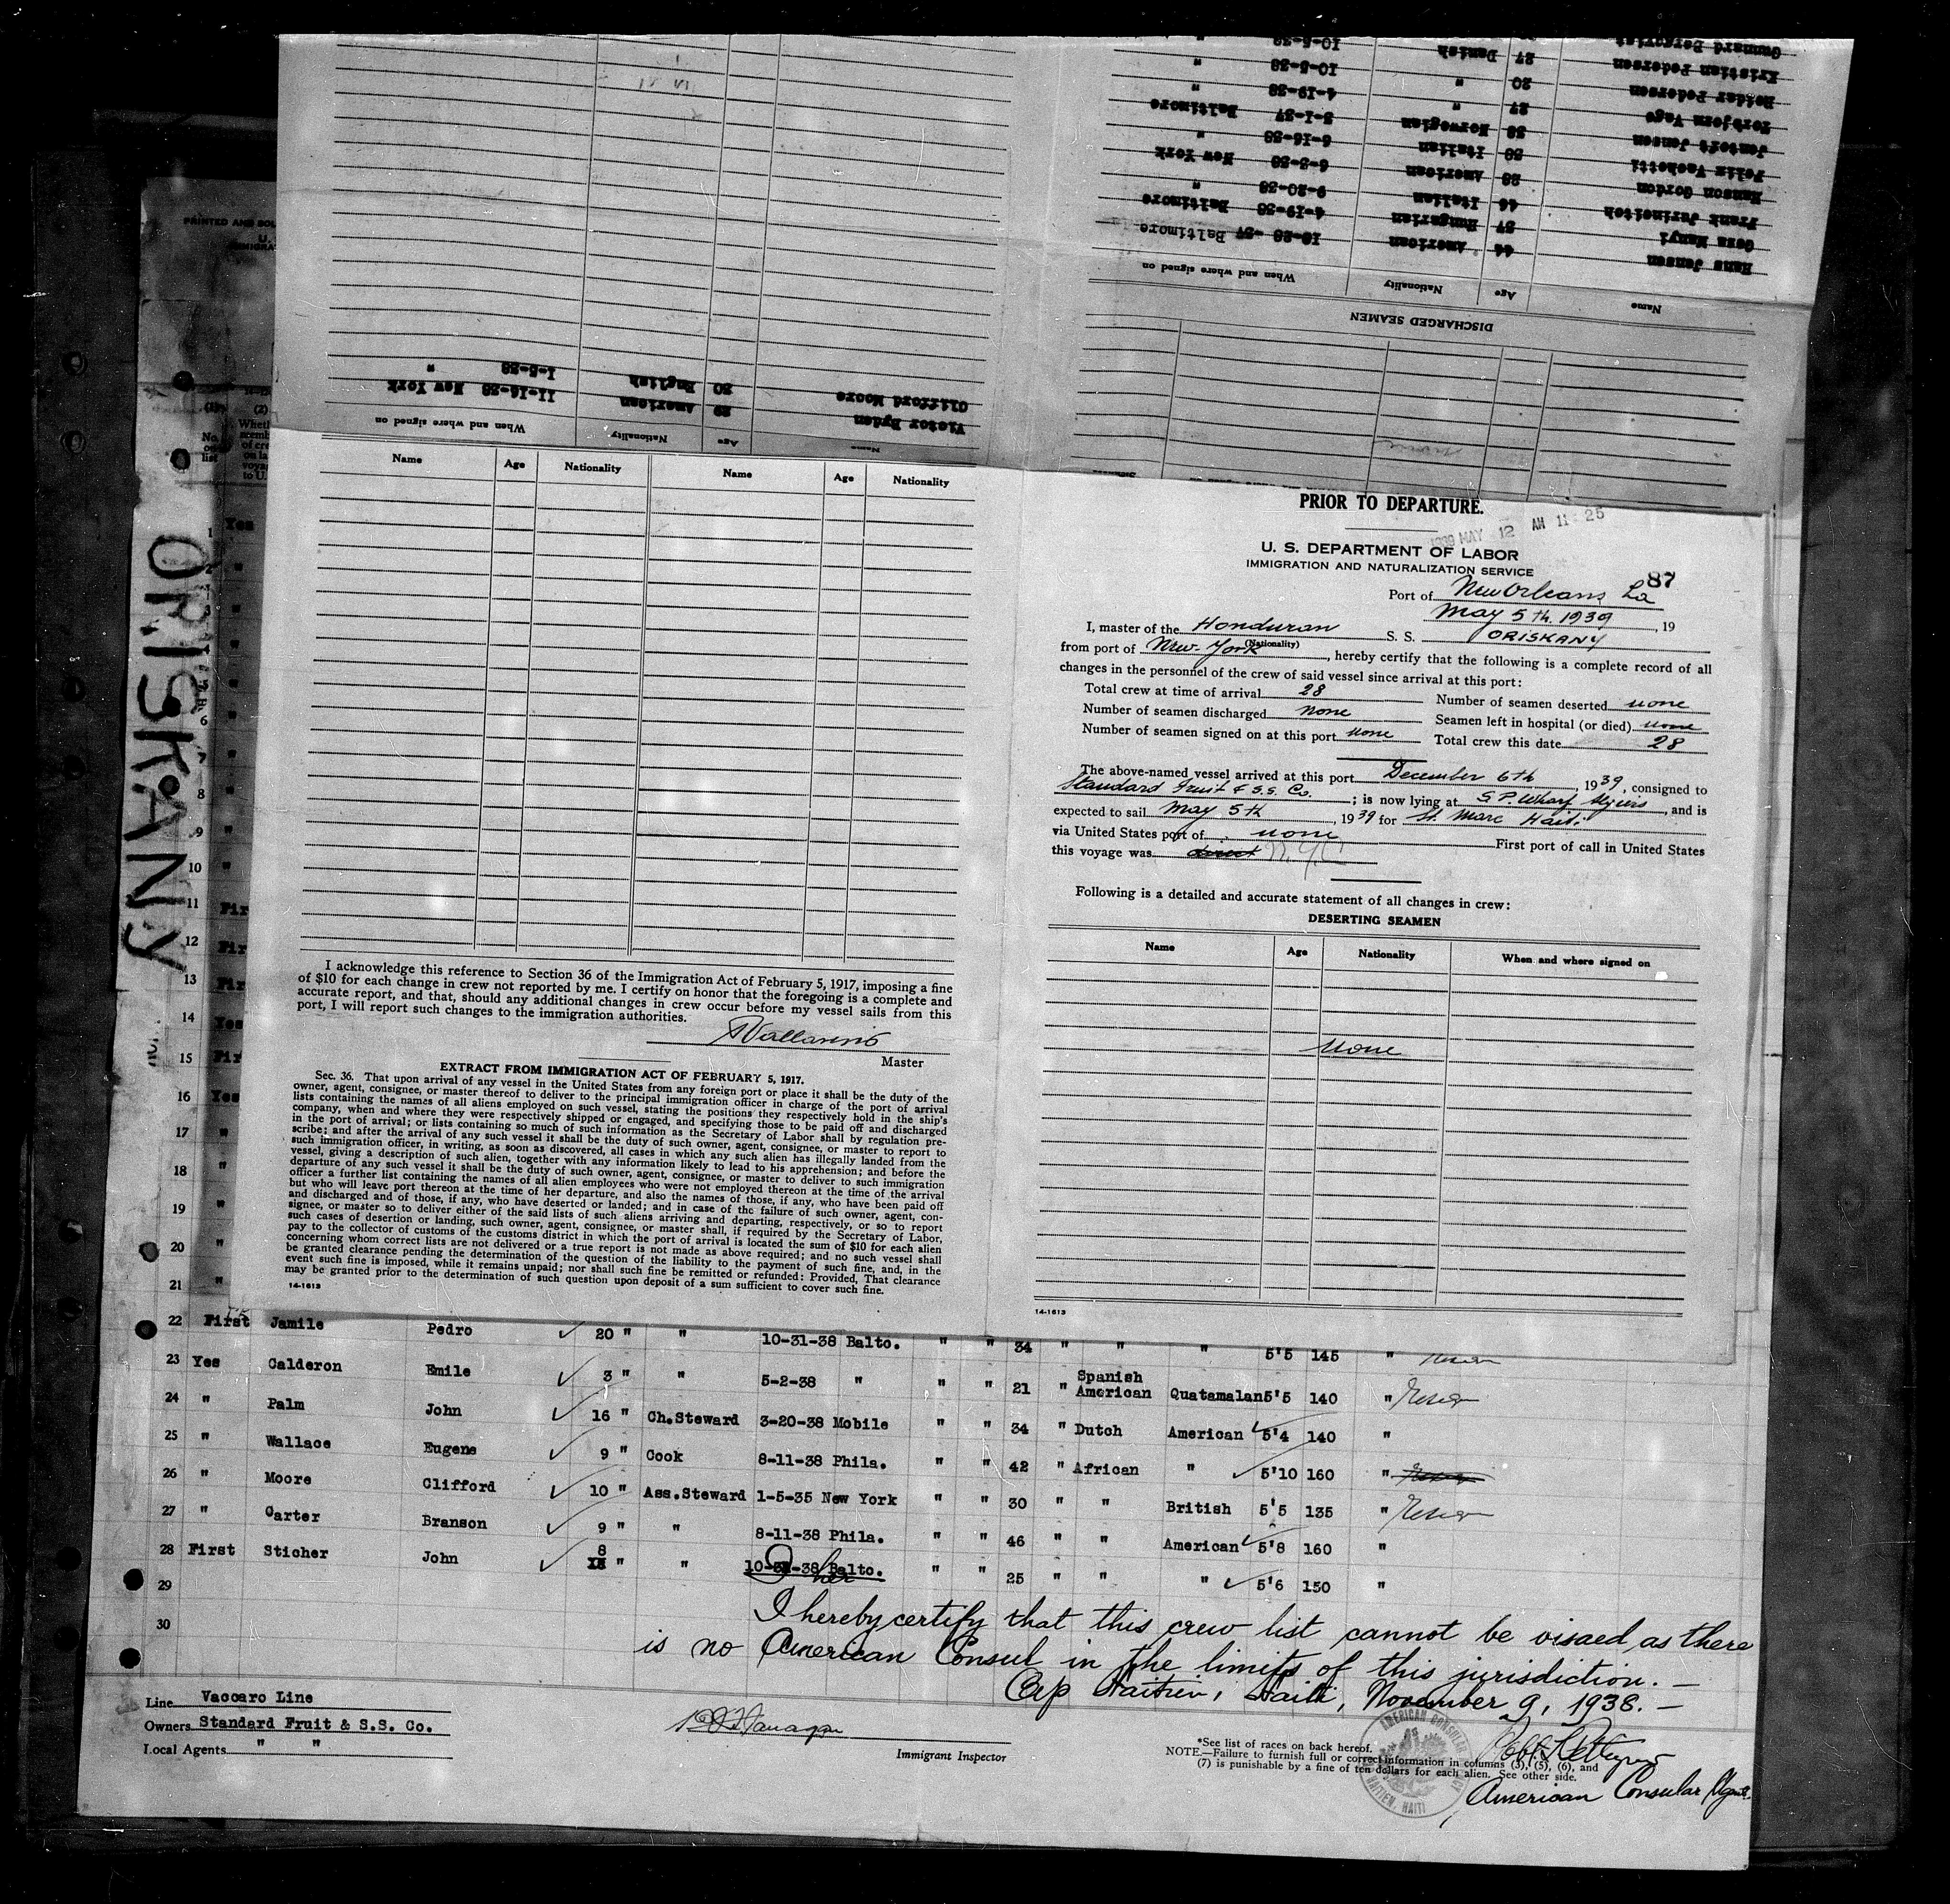 Gunnard Bergqvist
Kristian Pedersen 27 Danish 10-5-38 "
Reidar Pedersen 20 " 10-5-38 "
Torbjorn Vage 27 " 4-19-38 "
Jentoft Jensen 38 Norwegian 3-1-37 Baltimore
Felix Vachetti 50 Italian 6-16-38 "
Hanson Gordon 28 American 6-3-38 New York
Frank Jurincitch 46 Italian 9-20-38 "
Geza Manyi 37 Hungarian 4-19-38 Baltimore
Hans Jensen 44 American 10-28-37 Baltimore
Name Age Nationality When and where signed on
DISCHARGED SEAMEN
Clifford Moore 30 English 1-5-38 "
Victor Ryden 29 American 11-16-38 New York
Name Age Nationality When and where signed on
PRINTED AND SOL
U.
IMMIGRA
No. on list
(2)
ORISKANY
Name Age Nationality Name Age Nationality
I acknowledge this reference to Section 36 of the Immigration Act of February 5, 1917, imposing a fine
of $10 for each change in crew not reported by me. I certify on honor that the foregoing is a complete and
accurate report, and that, should any additional changes in crew occur before my vessel sails from this
port, I will report such changes to the immigration authorities.
Master
EXTRACT FROM IMMIGRATION ACT OF FEBRUARY 5, 1917.
Sec. 36. That upon arrival of any vessel in the United States from any foreign port or place it shall be the duty of the
owner, agent, consignee, or master thereof to deliver to the principal immigration officer in charge of the port of arrival
lists containing the names of all aliens employed on such vessel, stating the positions they respectively hold in the ship's
company, when and where they were respectively shipped or engaged, and specifying those to be paid off and discharged
in the port of arrival; or lists containing so much of such information as the Secretary of Labor shall by regulation pre-
scribe; and after the arrival of any such vessel it shall be the duty of such owner, agent, consignee, or master to report to
such immigration officer, in writing, as soon as discovered, all cases in which any such alien has illegally landed from the
vessel, giving a description of such alien, together with any information likely to lead to his apprehension; and before the
departure of any such vessel it shall be the duty of such owner, agent, consignee, or master to deliver to such immigration
officer a further list containing the names of all alien employees who were not employed thereon at the time of the arrival
but who will leave port thereon at the time of her departure, and also the names of those, if any, who have been paid off
and discharged and of those, if any, who have deserted or landed; and in case of the failure of such owner, agent, con-
signee, or master so to deliver either of the said lists of such aliens arriving and departing, respectively, or so to report
such cases of desertion or landing, such owner, agent, consignee, or master shall, if required by the Secretary of Labor,
pay to the collector of customs of the customs district in which the port of arrival is located the sum of $10 for each alien
concerning whom correct lists are not delivered or a true report is not made as above required; and no such vessel shall
be granted clearance pending the determination of the question of the liability to the payment of such fine, and, in the
event such fine is imposed, while it remains unpaid; nor shall such fine be remitted or refunded: Provided, That clearance
may be granted prior to the determination of such question upon deposit of a sum sufficient to cover such fine.
14-1613
PRIOR TO DEPARTURE.
1939 MAY 12 AM 11 25
U. S. DEPARTMENT OF LABOR
IMMIGRATION AND NATURALIZATION SERVICE
87
Port of New Orleans La
May 5th. 1939, 19
I, master of the Honduran S. S. ORISKANY
(Nationality)
from port of New-York, hereby certify that the following is a complete record of all
changes in the personnel of the crew of said vessel since arrival at this port:
Total crew at time of arrival 28 Number of seamen deserted none
Number of seamen discharged none Seamen left in hospital (or died) none
Number of seamen signed on at this port none Total crew this date 28
The above-named vessel arrived at this port December 6th, 1939, consigned to
Standard Fruit & S.S. Co.; is now lying at S.P. Wharf Algiers, and is
expected to sail May 5th, 1939 for St. Marc Haiti
via United States port of none First port of call in United States
this voyage was direct N.Y.C
Following is a detailed and accurate statement of all changes in crew:
DESERTING SEAMEN
Name Age Nationality When and where signed on
None
14-1613
22 First Jamile Pedro 20 " " 10-31-38 Balto. " " 34 " " " 5'5 145 "
23 Yes Calderon Emile 3 " " 5-2-38 " " " 21 " Spanish American Quatamalan 5'5 140 "
24 " Palm John 16 " Ch.Steward 3-20-38 Mobile " " 34 " Dutch American 5'4 140 "
25 " Wallace Eugene 9 " Cook 8-11-38 Phila. " " 42 " African " 5'10 160 "
26 " Moore Clifford 10 " Ass.Steward 1-5-35 New York " " 30 " " British 5'5 135 "
27 " Carter Branson 9 " " 8-11-38 Phila. " " 46 " " American 5'8 160 "
28 First Sticher John 8 " " 10-31-38 Balto. " " 25 " " " 5'6 150 "
29
30
I hereby certify that this crew list cannot be visaed as there
is no American Consul in the limits of this jurisdiction. —
Cap Haitien, Haiti, November 9, 1938. —
Line Vaccaro Line
Owners Standard Fruit & S.S. Co.
Local Agents " "
Immigrant Inspector
*See list of races on back hereof.
NOTE.—Failure to furnish full or correct information in columns (3), (5), (6), and
(7) is punishable by a fine of ten dollars for each alien. See other side.
American Consular Agent.